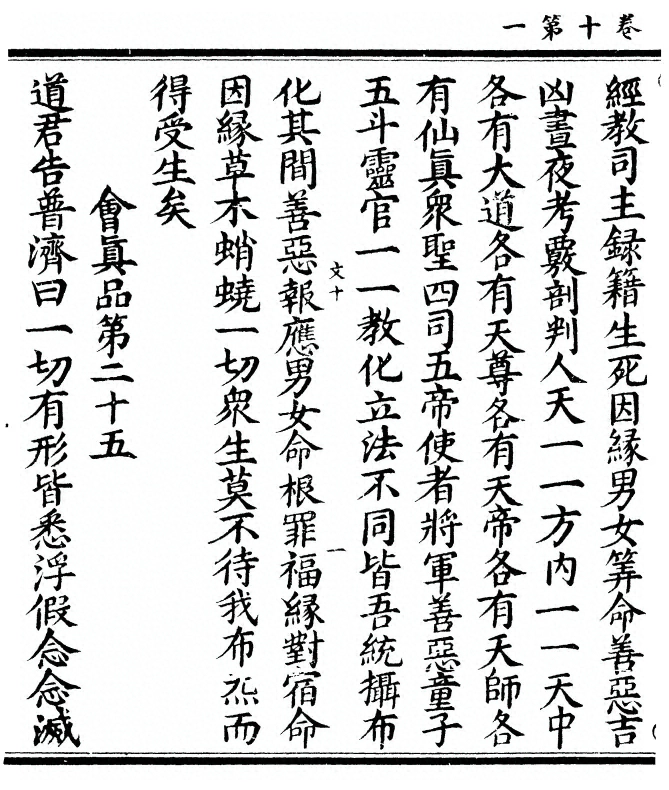 卷十第一
經教司主録籍生死因緣男女筭命善惡吉
凶晝夜考覈剖判人天一一方内一一天中
各有大道各有天尊各有天帝各有天師各
有仙眞衆聖四司五帝使者將軍善惡童子
五斗靈官一一教化立法不同皆吾統攝布
文十
一
化其間善惡報應男女命根罪福緣對宿命
因緣草木蛸蟯一切衆生莫不待我布炁而
得受生矣
會眞品第二十五
道君告普濟曰一切有形皆悉浮假念念滅